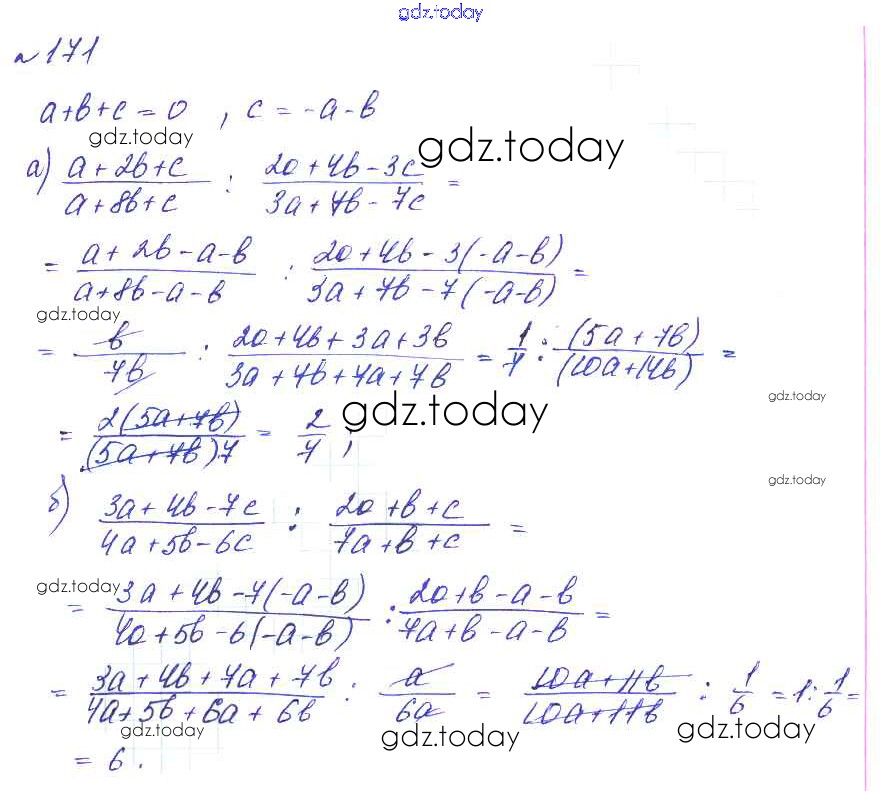 gdz.today
№171
a+b+c=0, c=-a-b
gdz.today
gdz.today
а) (a+2b+c)/(a+8b+c) : (2a+4b-3c)/(3a+7b-7c) =
= (a+2b-a-b)/(a+8b-a-b) : (2a+4b-3(-a-b))/(3a+7b-7(-a-b)) =
gdz.today
= b/7b : (2a+4b+3a+3b)/(3a+7b+7a+7b) = 1/7 : (5a+7b)/(10a+14b) =
gdz.today
= 2(5a+7b)/(5a+7b)7 = 2/7;
gdz.today
gdz.today
б) (3a+4b-7c)/(4a+5b-6c) : (2a+b+c)/(7a+b+c) =
gdz.today
= (3a+4b-7(-a-b))/(4a+5b-6(-a-b)) : (2a+b-a-b)/(7a+b-a-b) =
= (3a+4b+7a+7b)/(4a+5b+6a+6b) : a/6a = (10a+11b)/(10a+11b) : 1/6 = 1:1/6 =
gdz.today
gdz.today
gdz.today
= 6.